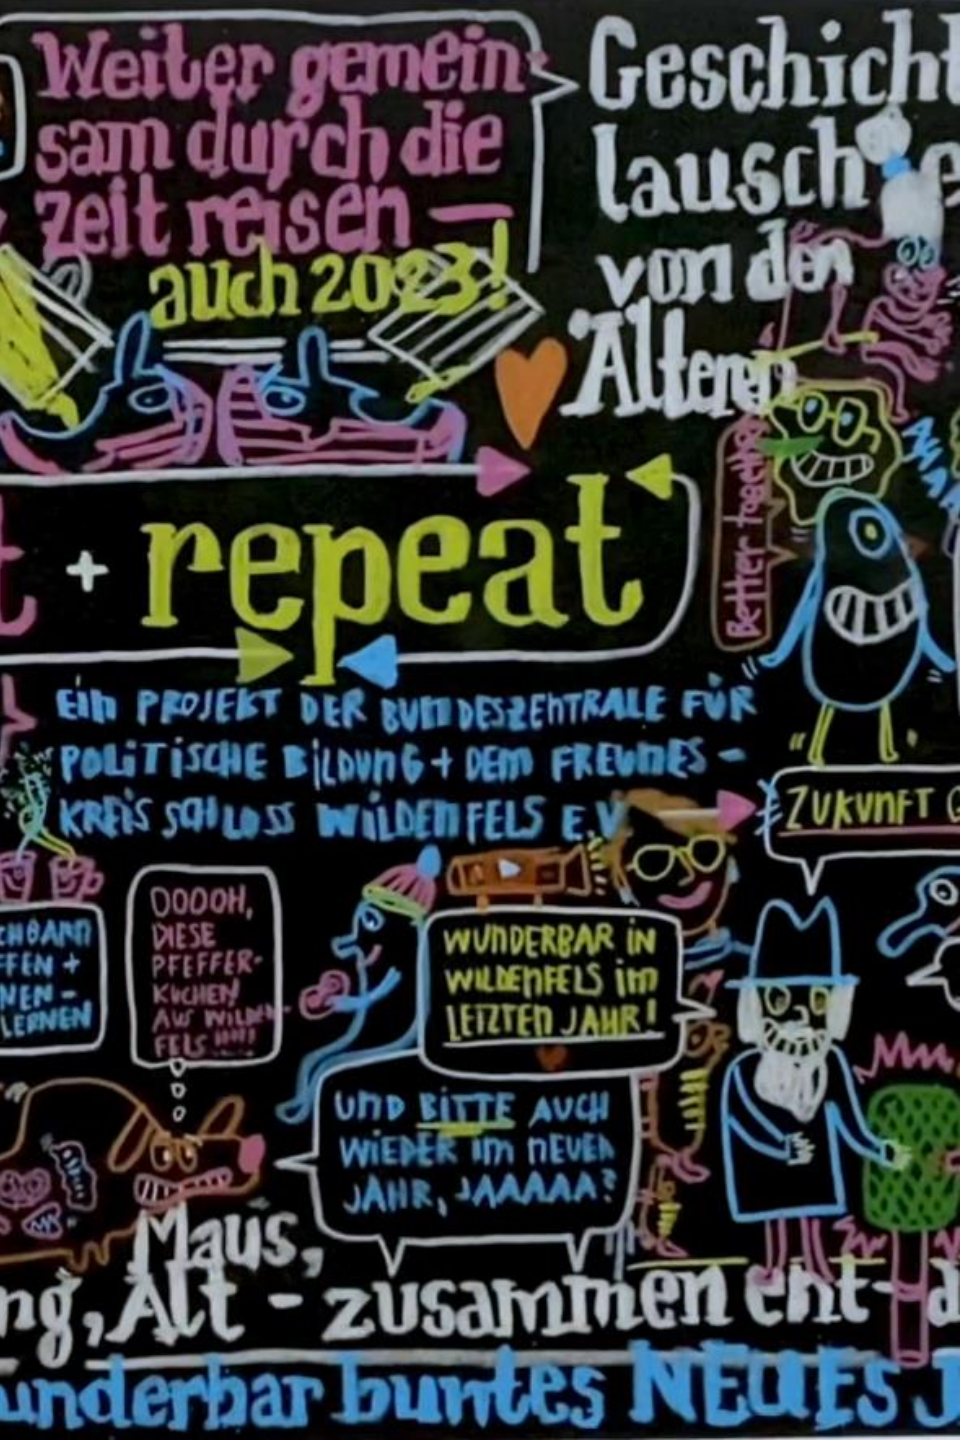 Weiter gemein-
sam durch die
zeit reisen —
auch 2023!
Geschicht
lausch
von den
Älteren
+ repeat
Better together
EIN PROJEKT DER BUNDESZENTRALE FÜR
POLITISCHE BILDUNG + DEM FREUNDES-
KREIS SCHLOSS WILDENFELS E.V
ZUKUNFT G
CHBARN
FFEN +
NEN-
LERNEN
DOOOH,
DIESE
PFEFFER-
KUCHEN
AUS WILDEN-
FELS !!!!
WUNDERBAR IN
WILDENFELS IM
LETZTEN JAHR!
UND BITTE AUCH
WIEDER IM NEUEN
JAHR, JAAAAA?
Maus,
ng, Alt - zusammen ent-d
underbar buntes NEUES J